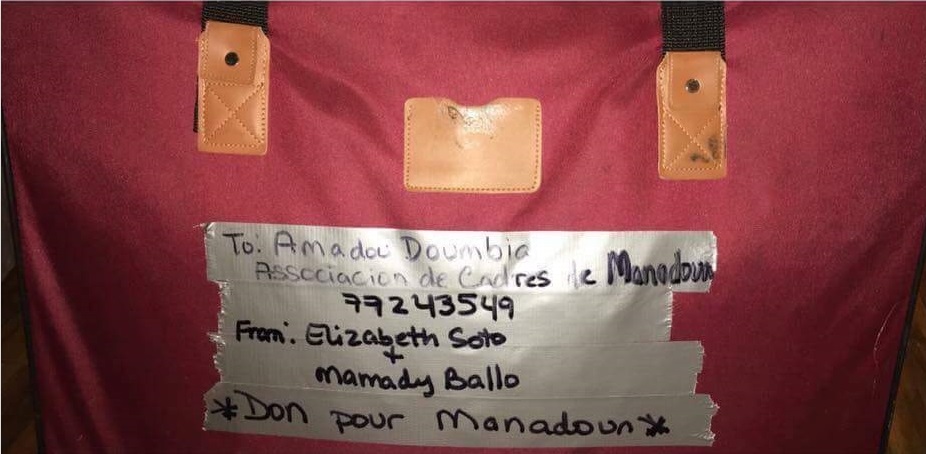 To: Amadou Doumbia
Associacion de Cadres de Manadoun
77243549
From: Elizabeth Soto
+
Mamady Ballo
*Don pour Manadoun*